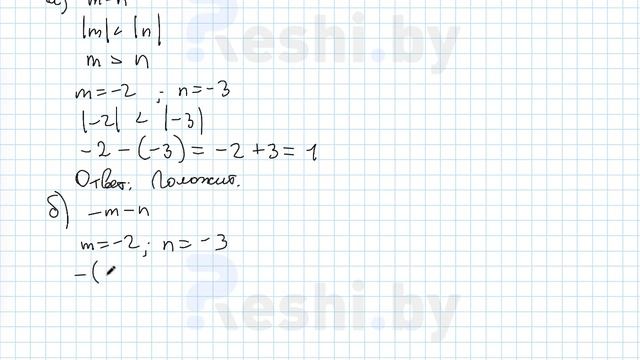 а) m-n
|m| < |n|
m > n
m = -2 ; n = -3
|-2| < |-3|
-2 - (-3) = -2 + 3 = 1
Ответ: Положит.
б) -m-n
m = -2 ; n = -3
-(
Reshi.by
Reshi.by